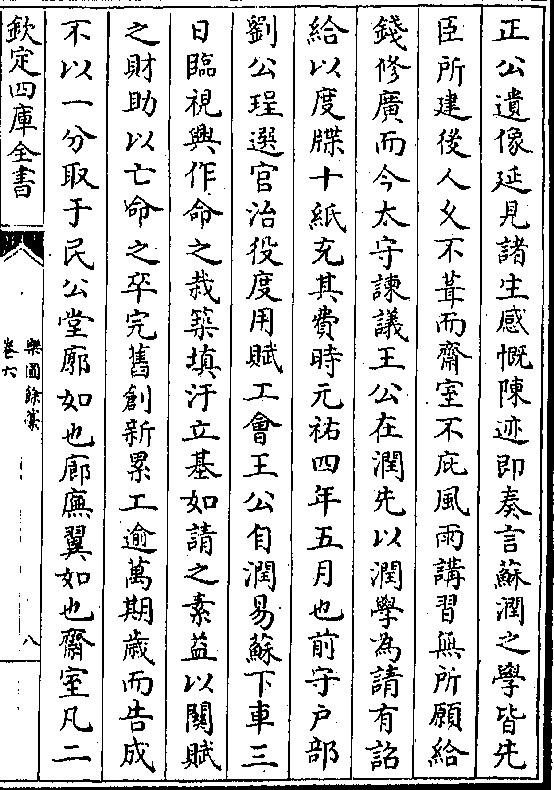 正公遺像延見諸生感慨陳迹即奏言蘇潤之學皆先
臣所建後人久不葺而齋室不庇風雨講習無所願給
錢修廣而今太守諫議王公在潤先以潤學為請有詔
給以度牒十紙充其費時元祐四年五月也前守户部
劉公珵選官治役度用賦工會王公自潤易蘇下車三
日臨視興作命之栽築填汙立基如請之素益以闗賦
之財助以亡命之卒完舊創新累工逾萬期歲而告成
不以一分取于民公堂廓如也廊廡翼如也齋室凡二
欽定四庫全書
樂圃餘藁
卷六
八